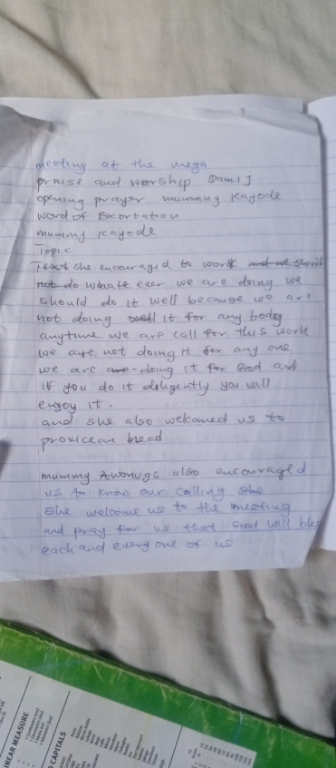 meeting at the mega
praise and worship Daniel J
opening prayer mummy Kayode
word of Excortation
mummy Kayode
Topic
Text she encouraged to work and we should
not do whate ever we are doing we
should do it well because we are
not doing well it for any body
anytime we are call for this work
we are not doing it for any one
we are doing it for God and
if you do it deligently you will
enjoy it.
and she also welcomed us to
provicean head
mummy also encouraged
us to know our calling she
she welcome us to the meeting
and pray for us that God will bless
each and every one of us
LINEAR MEASURE
CAPITALS